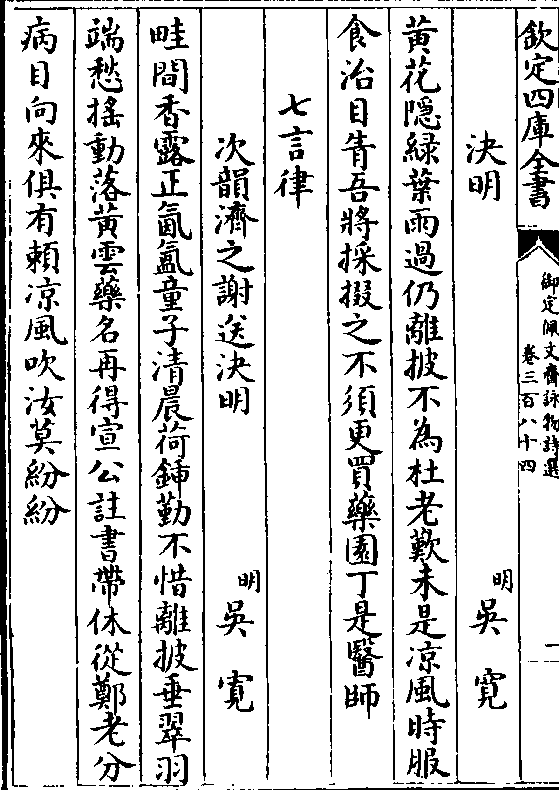 欽定四庫全書
御定佩文齋詠物詩選
卷三百八十四
一
決明
明
吳寬
黃花隠緑葉雨過仍離披不為杜老歎未是凉風時服
食治目眚吾將採掇之不須更買藥園丁是醫師
七言律
次韻濟之謝送決明
明
吳寬
畦間香露正氤氳童子清晨荷鍤勤不惜離披垂翠羽
端愁揺動落黃雲藥名再得宣公註書帶休從鄭老分
病目向來俱有頼凉風吹汝莫紛紛